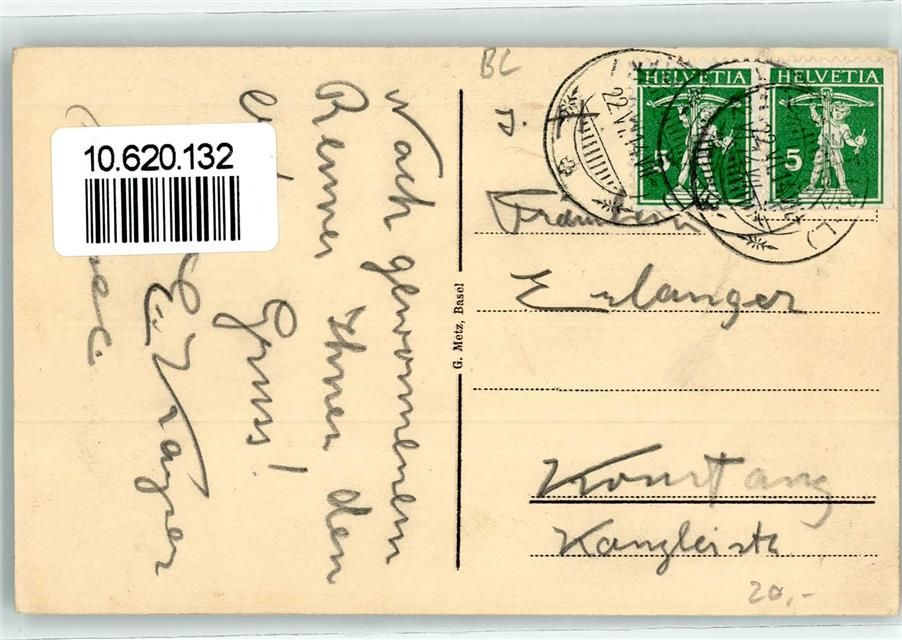 BL
HELVETIA
HELVETIA
5
5
10.620.132
Nach gewonnenem
Rennen Ihnen den
Gruss!
E. Wagner
G. Metz, Basel
Fräulein
Erlanger
Konstanz
Kanzleistr
20.-